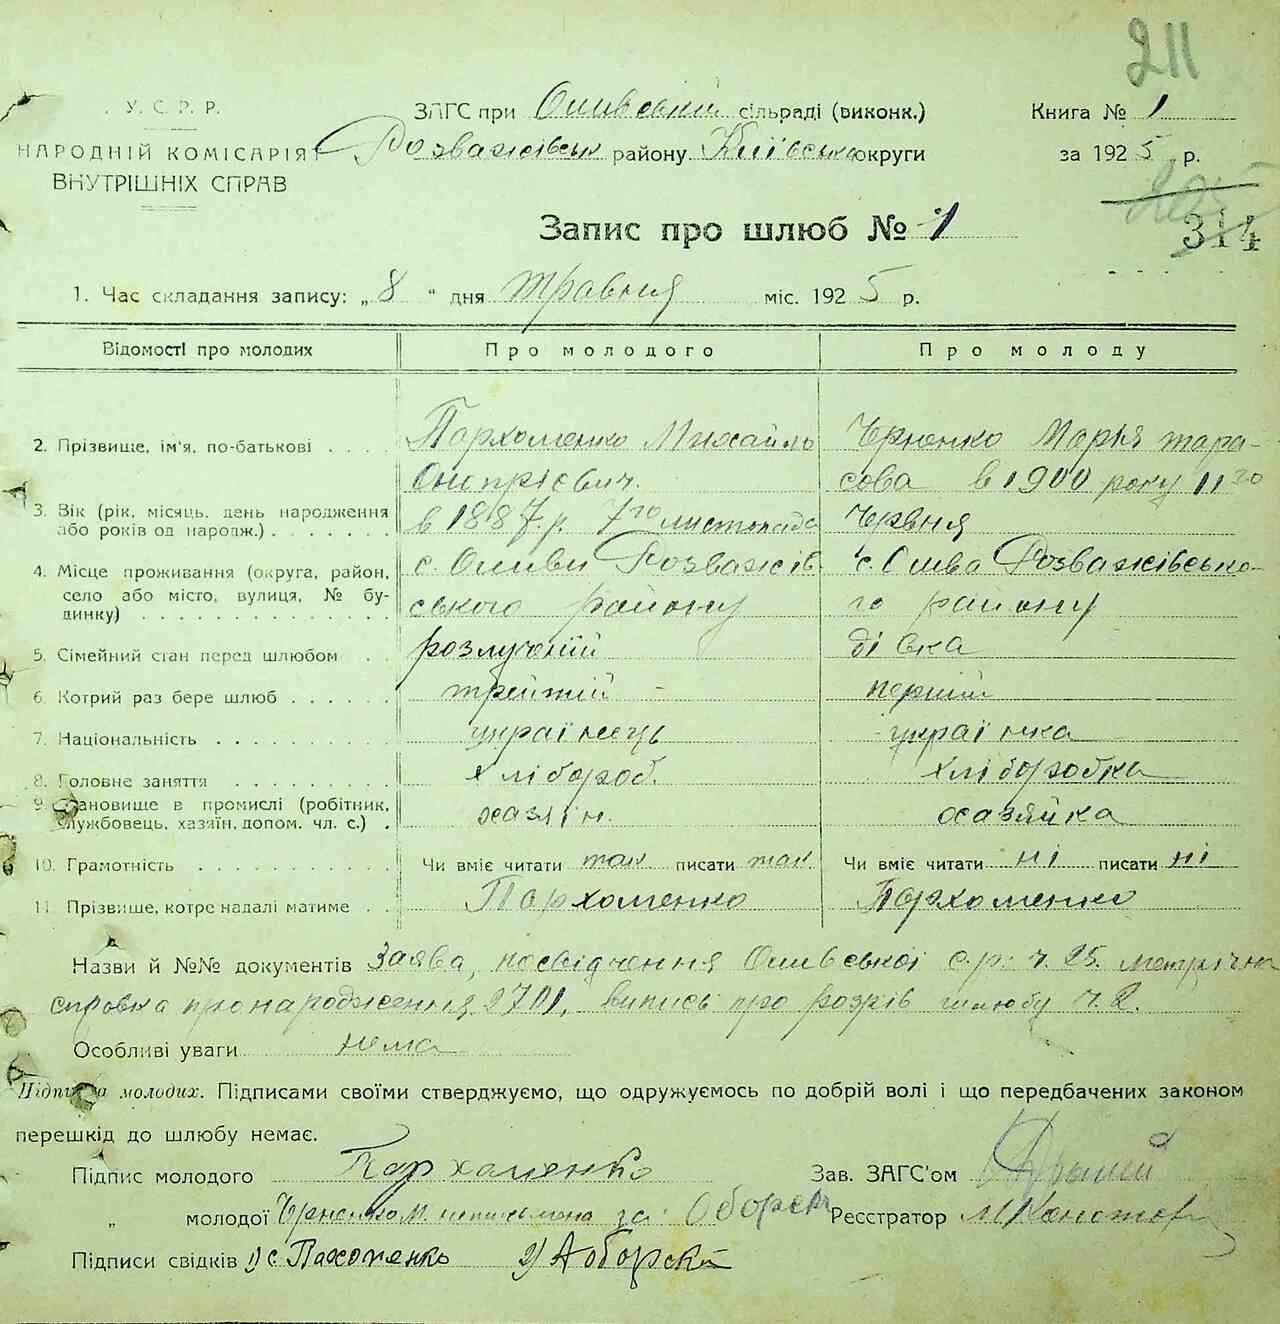 211
У. С. Р. Р.
НАРОДНІЙ КОМІСАРІЯТ
ВНУТРІШНІХ СПРАВ
ЗАГС при Оливській сільраді (виконк.)
Розважівськ району Київськ округи
Книга № 1
за 1925 р.
314
Запис про шлюб № 1
1. Час складання запису: „8" дня травня міс. 1925 р.
Відомості про молодих Про молодого Про молоду
2. Прізвище, ім'я, по-батькові . . . . Пархоменко Михайло Черненко Марія тара-
Онопрієвич. сова в 1900 року 11го
3. Вік (рік, місяць, день народження
або років од народж.) . . . . . . . в 1887.р. 7го листопада Червня
4. Місце проживання (округа, район, с. Оливи Розважів с. Олива Розважівсько-
село або місто, вулиця, № бу-
динку) . . . . . . . . . . . . . . ського району го району
5. Сімейний стан перед шлюбом . . розлучній дівка
6. Котрий раз бере шлюб . . . . . . третій - перший
7. Національність . . . . . . . . . . українець українка
8. Головне заняття . . . . . . . . . хлібороб. хліборобка
9. Становище в промислі (робітник,
службовець, хазяїн, допом. чл. с.) . хазяїн. хазяйка
10. Грамотність . . . . . . . . . . . Чи вміє читати так писати так. Чи вміє читати ні писати ні
11. Прізвище, котре надалі матиме . . Пархоменко Пархоменко
Назви й №№ документів Заява, посвідчення Оливської с.р. ч. 25. метрічна
справка про народження 2701, випись про розрів шлюбу ч. 2.
Особливі уваги нема
Підписа молодих. Підписами своїми стверджуємо, що одружуємось по добрій волі і що передбачених законом
перешкід до шлюбу немає.
Підпис молодого Пархоменко Зав. ЗАГС'ом
„ молодої Черненко М. неписьмена за Оборск Реєстратор
Підписи свідків 1) с. Пахоменко 2) А Оборск